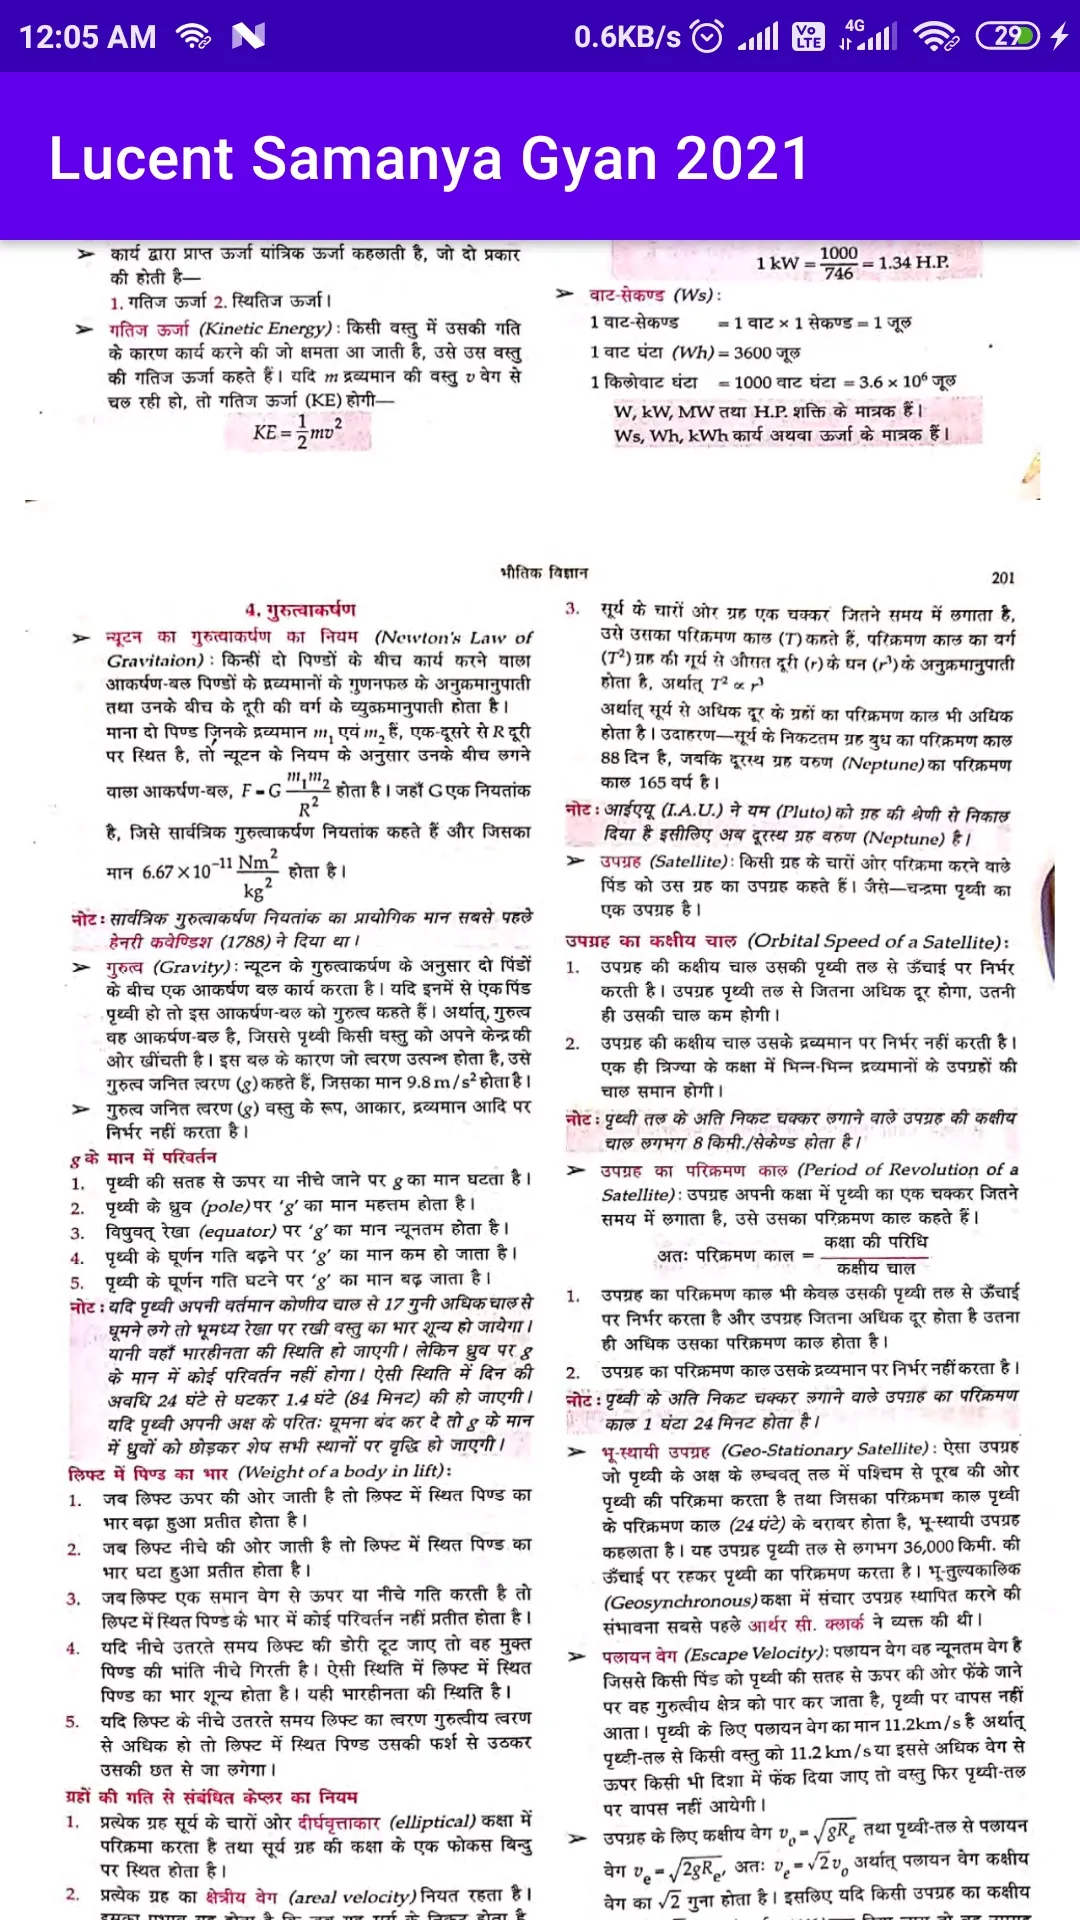 12:05 AM
0.6KB/s
Vo LTE
4G
29
Lucent Samanya Gyan 2021
➢ कार्य द्वारा प्राप्त ऊर्जा यांत्रिक ऊर्जा कहलाती है, जो दो प्रकार
की होती है—
1. गतिज ऊर्जा 2. स्थितिज ऊर्जा।
➢ गतिज ऊर्जा (Kinetic Energy) : किसी वस्तु में उसकी गति
के कारण कार्य करने की जो क्षमता आ जाती है, उसे उस वस्तु
की गतिज ऊर्जा कहते हैं। यदि m द्रव्यमान की वस्तु v वेग से
चल रही हो, तो गतिज ऊर्जा (KE) होगी—
KE = 1/2 mv²
1 kW = 1000/746 = 1.34 H.P.
➢ वाट-सेकण्ड (Ws) :
1 वाट-सेकण्ड = 1 वाट × 1 सेकण्ड = 1 जूल
1 वाट घंटा (Wh) = 3600 जूल
1 किलोवाट घंटा = 1000 वाट घंटा = 3.6 × 10⁶ जूल
W, kW, MW तथा H.P. शक्ति के मात्रक हैं।
Ws, Wh, kWh कार्य अथवा ऊर्जा के मात्रक हैं।
भौतिक विज्ञान
201
4. गुरुत्वाकर्षण
➢ न्यूटन का गुरुत्वाकर्षण का नियम (Newton's Law of
Gravitaion) : किन्हीं दो पिण्डों के बीच कार्य करने वाला
आकर्षण-बल पिण्डों के द्रव्यमानों के गुणनफल के अनुक्रमानुपाती
तथा उनके बीच के दूरी की वर्ग के व्युत्क्रमानुपाती होता है।
माना दो पिण्ड जिनके द्रव्यमान m₁ एवं m₂ हैं, एक-दूसरे से R दूरी
पर स्थित है, तो न्यूटन के नियम के अनुसार उनके बीच लगने
वाला आकर्षण-बल, F = G m₁m₂/R² होता है। जहाँ G एक नियतांक
है, जिसे सार्वत्रिक गुरुत्वाकर्षण नियतांक कहते हैं और जिसका
मान 6.67 × 10⁻¹¹ Nm²/kg² होता है।
नोट : सार्वत्रिक गुरुत्वाकर्षण नियतांक का प्रायोगिक मान सबसे पहले
हेनरी कवेण्डिश (1788) ने दिया था।
➢ गुरुत्व (Gravity) : न्यूटन के गुरुत्वाकर्षण के अनुसार दो पिंडों
के बीच एक आकर्षण बल कार्य करता है। यदि इनमें से एक पिंड
पृथ्वी हो तो इस आकर्षण-बल को गुरुत्व कहते हैं। अर्थात्, गुरुत्व
वह आकर्षण-बल है, जिससे पृथ्वी किसी वस्तु को अपने केन्द्र की
ओर खींचती है। इस बल के कारण जो त्वरण उत्पन्न होता है, उसे
गुरुत्व जनित त्वरण (g) कहते हैं, जिसका मान 9.8 m/s² होता है।
➢ गुरुत्व जनित त्वरण (g) वस्तु के रूप, आकार, द्रव्यमान आदि पर
निर्भर नहीं करता है।
g के मान में परिवर्तन
1. पृथ्वी की सतह से ऊपर या नीचे जाने पर g का मान घटता है।
2. पृथ्वी के ध्रुव (pole) पर 'g' का मान महत्तम होता है।
3. विषुवत् रेखा (equator) पर 'g' का मान न्यूनतम होता है।
4. पृथ्वी के घूर्णन गति बढ़ने पर 'g' का मान कम हो जाता है।
5. पृथ्वी के घूर्णन गति घटने पर 'g' का मान बढ़ जाता है।
नोट : यदि पृथ्वी अपनी वर्तमान कोणीय चाल से 17 गुनी अधिक चाल से
घूमने लगे तो भूमध्य रेखा पर रखी वस्तु का भार शून्य हो जायेगा।
यानी वहाँ भारहीनता की स्थिति हो जाएगी। लेकिन ध्रुव पर g
के मान में कोई परिवर्तन नहीं होगा। ऐसी स्थिति में दिन की
अवधि 24 घंटे से घटकर 1.4 घंटे (84 मिनट) की हो जाएगी।
यदि पृथ्वी अपनी अक्ष के परितः घूमना बंद कर दे तो g के मान
में ध्रुवों को छोड़कर शेष सभी स्थानों पर वृद्धि हो जाएगी।
लिफ्ट में पिण्ड का भार (Weight of a body in lift) :
1. जब लिफ्ट ऊपर की ओर जाती है तो लिफ्ट में स्थित पिण्ड का
भार बढ़ा हुआ प्रतीत होता है।
2. जब लिफ्ट नीचे की ओर जाती है तो लिफ्ट में स्थित पिण्ड का
भार घटा हुआ प्रतीत होता है।
3. जब लिफ्ट एक समान वेग से ऊपर या नीचे गति करती है तो
लिफ्ट में स्थित पिण्ड के भार में कोई परिवर्तन नहीं प्रतीत होता है।
4. यदि नीचे उतरते समय लिफ्ट की डोरी टूट जाए तो वह मुक्त
पिण्ड की भांति नीचे गिरती है। ऐसी स्थिति में लिफ्ट में स्थित
पिण्ड का भार शून्य होता है। यही भारहीनता की स्थिति है।
5. यदि लिफ्ट के नीचे उतरते समय लिफ्ट का त्वरण गुरुत्वीय त्वरण
से अधिक हो तो लिफ्ट में स्थित पिण्ड उसकी फर्श से उठकर
उसकी छत से जा लगेगा।
ग्रहों की गति से संबंधित केप्लर का नियम
1. प्रत्येक ग्रह सूर्य के चारों ओर दीर्घवृत्ताकार (elliptical) कक्षा में
परिक्रमा करता है तथा सूर्य ग्रह की कक्षा के एक फोकस बिन्दु
पर स्थित होता है।
2. प्रत्येक ग्रह का क्षेत्रीय वेग (areal velocity) नियत रहता है।
3. सूर्य के चारों ओर ग्रह एक चक्कर जितने समय में लगाता है,
उसे उसका परिक्रमण काल (T) कहते हैं, परिक्रमण काल का वर्ग
(T²) ग्रह की सूर्य से औसत दूरी (r) के घन (r³) के अनुक्रमानुपाती
होता है, अर्थात् T² ∝ r³
अर्थात् सूर्य से अधिक दूर के ग्रहों का परिक्रमण काल भी अधिक
होता है। उदाहरण—सूर्य के निकटतम ग्रह बुध का परिक्रमण काल
88 दिन है, जबकि दूरस्थ ग्रह वरुण (Neptune) का परिक्रमण
काल 165 वर्ष है।
नोट : आईएयू (I.A.U.) ने यम (Pluto) को ग्रह की श्रेणी से निकाल
दिया है इसीलिए अब दूरस्थ ग्रह वरुण (Neptune) है।
➢ उपग्रह (Satellite) : किसी ग्रह के चारों ओर परिक्रमा करने वाले
पिंड को उस ग्रह का उपग्रह कहते हैं। जैसे—चन्द्रमा पृथ्वी का
एक उपग्रह है।
उपग्रह का कक्षीय चाल (Orbital Speed of a Satellite) :
1. उपग्रह की कक्षीय चाल उसकी पृथ्वी तल से ऊँचाई पर निर्भर
करती है। उपग्रह पृथ्वी तल से जितना अधिक दूर होगा, उतनी
ही उसकी चाल कम होगी।
2. उपग्रह की कक्षीय चाल उसके द्रव्यमान पर निर्भर नहीं करती है।
एक ही त्रिज्या के कक्षा में भिन्न-भिन्न द्रव्यमानों के उपग्रहों की
चाल समान होगी।
नोट : पृथ्वी तल के अति निकट चक्कर लगाने वाले उपग्रह की कक्षीय
चाल लगभग 8 किमी./सेकेण्ड होता है।
➢ उपग्रह का परिक्रमण काल (Period of Revolution of a
Satellite) : उपग्रह अपनी कक्षा में पृथ्वी का एक चक्कर जितने
समय में लगाता है, उसे उसका परिक्रमण काल कहते हैं।
अतः परिक्रमण काल = कक्षा की परिधि / कक्षीय चाल
1. उपग्रह का परिक्रमण काल भी केवल उसकी पृथ्वी तल से ऊँचाई
पर निर्भर करता है और उपग्रह जितना अधिक दूर होता है उतना
ही अधिक उसका परिक्रमण काल होता है।
2. उपग्रह का परिक्रमण काल उसके द्रव्यमान पर निर्भर नहीं करता है।
नोट : पृथ्वी के अति निकट चक्कर लगाने वाले उपग्रह का परिक्रमण
काल 1 घंटा 24 मिनट होता है।
➢ भू-स्थायी उपग्रह (Geo-Stationary Satellite) : ऐसा उपग्रह
जो पृथ्वी के अक्ष के लम्बवत् तल में पश्चिम से पूरब की ओर
पृथ्वी की परिक्रमा करता है तथा जिसका परिक्रमण काल पृथ्वी
के परिक्रमण काल (24 घंटे) के बराबर होता है, भू-स्थायी उपग्रह
कहलाता है। यह उपग्रह पृथ्वी तल से लगभग 36,000 किमी. की
ऊँचाई पर रहकर पृथ्वी का परिक्रमण करता है। भू-तुल्यकालिक
(Geosynchronous) कक्षा में संचार उपग्रह स्थापित करने की
संभावना सबसे पहले आर्थर सी. क्लार्क ने व्यक्त की थी।
➢ पलायन वेग (Escape Velocity) : पलायन वेग वह न्यूनतम वेग है
जिससे किसी पिंड को पृथ्वी की सतह से ऊपर की ओर फेंके जाने
पर वह गुरुत्वीय क्षेत्र को पार कर जाता है, पृथ्वी पर वापस नहीं
आता। पृथ्वी के लिए पलायन वेग का मान 11.2km/s है अर्थात्
पृथ्वी-तल से किसी वस्तु को 11.2 km/s या इससे अधिक वेग से
ऊपर किसी भी दिशा में फेंक दिया जाए तो वस्तु फिर पृथ्वी-तल
पर वापस नहीं आयेगी।
➢ उपग्रह के लिए कक्षीय वेग v₀ = √gRₑ तथा पृथ्वी-तल से पलायन
वेग vₑ = √2gRₑ, अतः vₑ = √2 v₀ अर्थात् पलायन वेग कक्षीय
वेग का √2 गुना होता है। इसलिए यदि किसी उपग्रह का कक्षीय